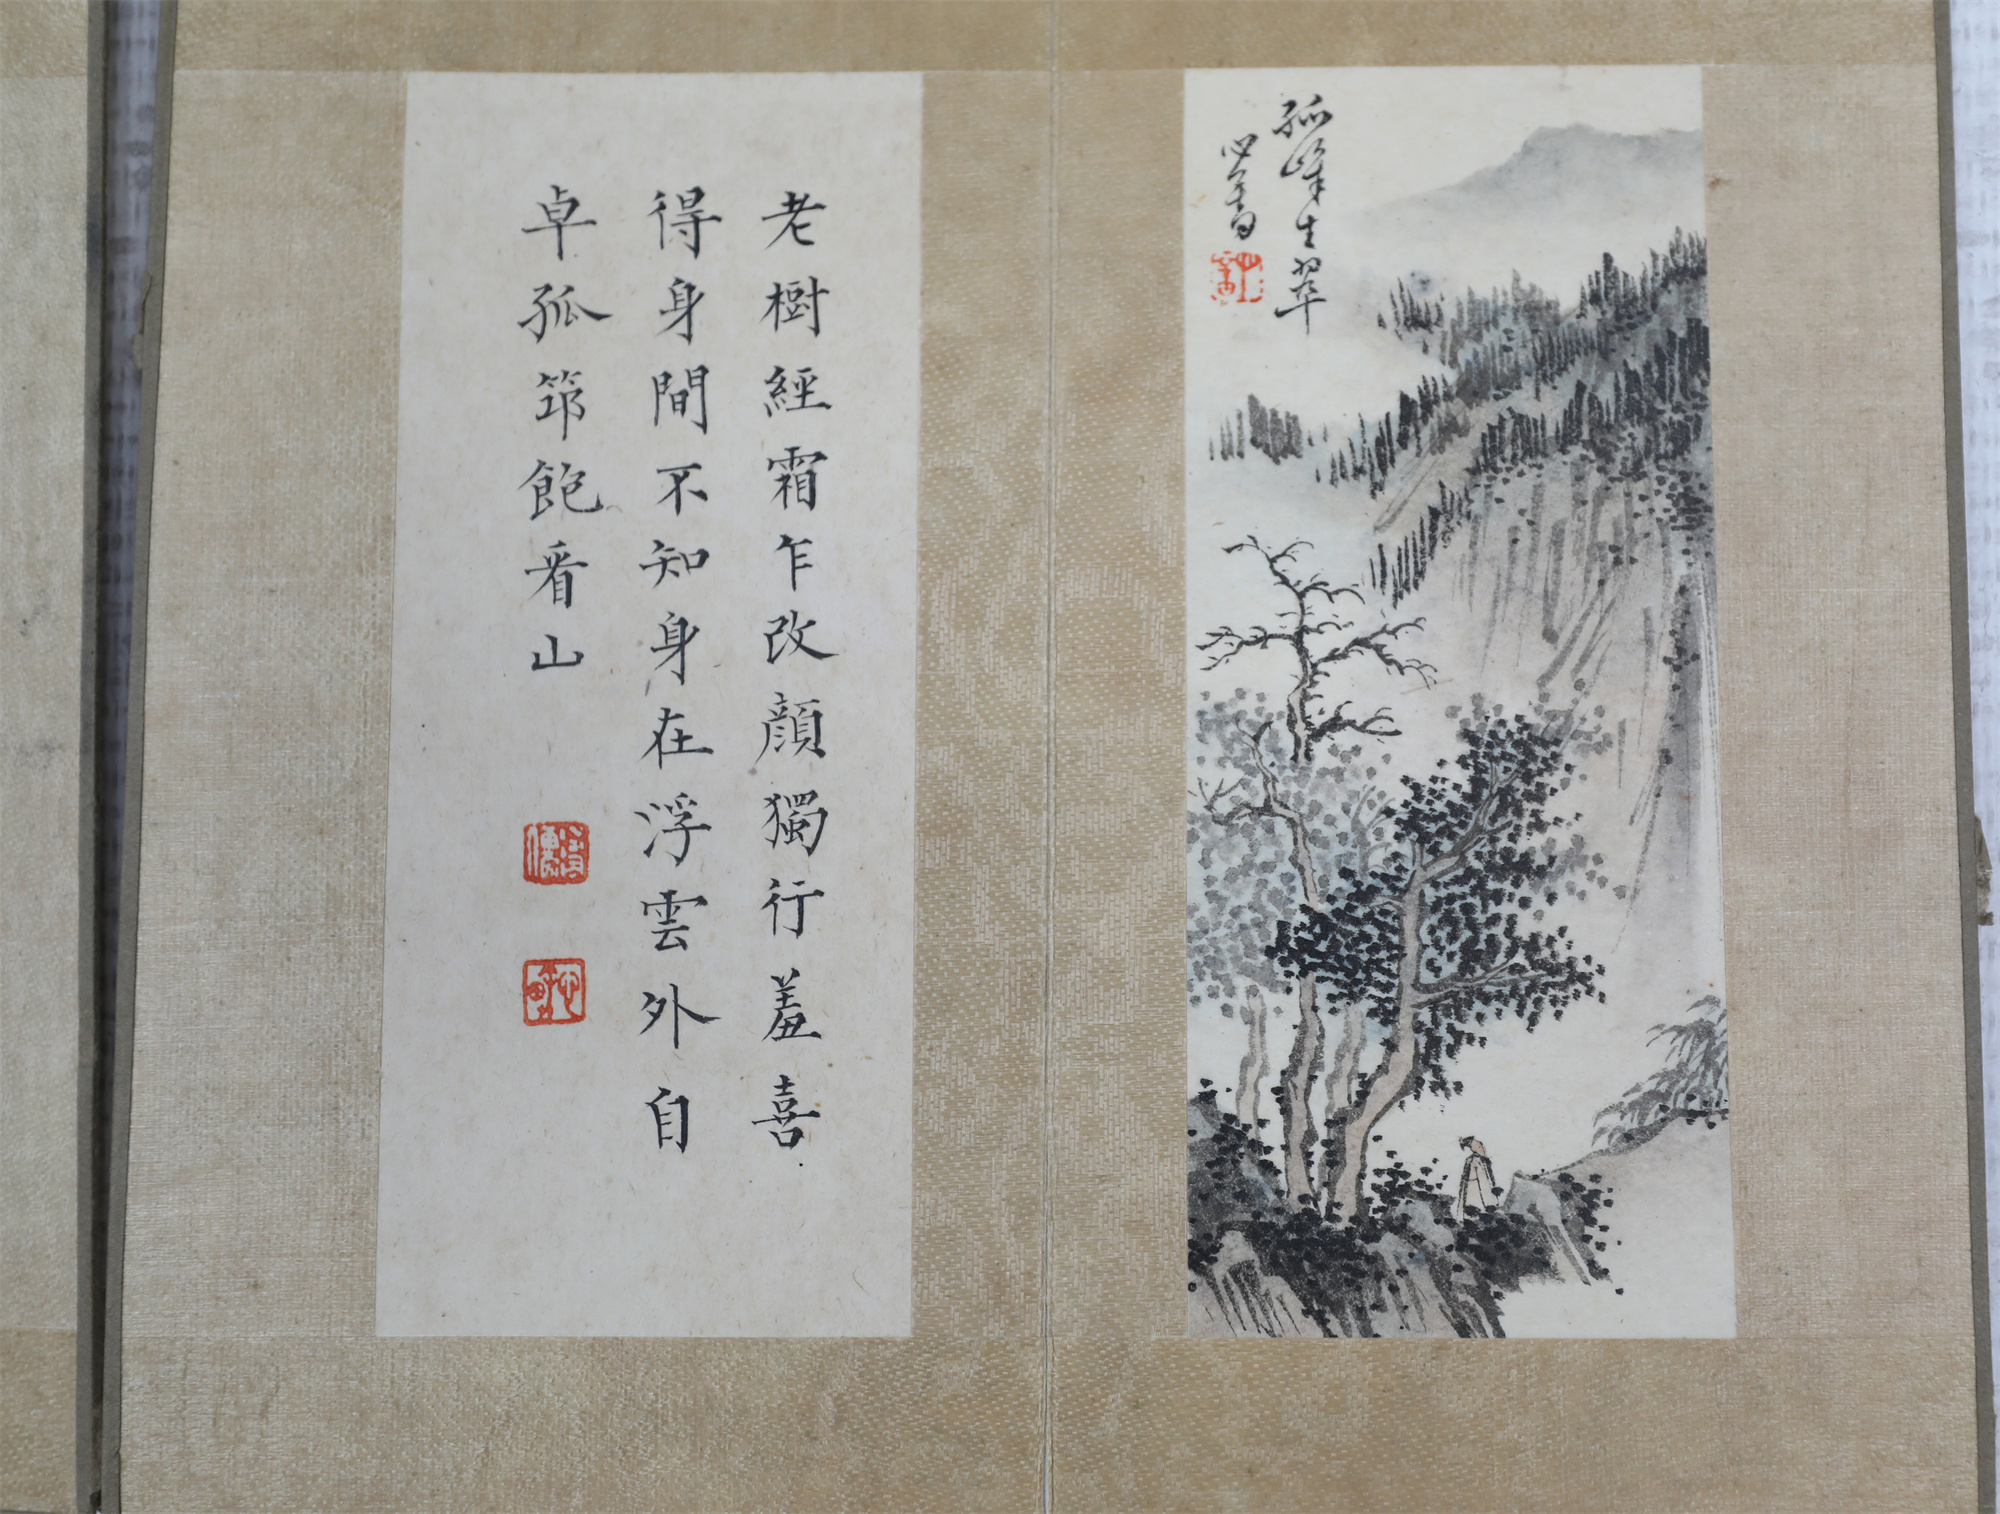 孤峰生翠
心畬
老樹經霜乍改顔獨行羞喜
得身間不知身在浮雲外自
卓孤筇飽看山